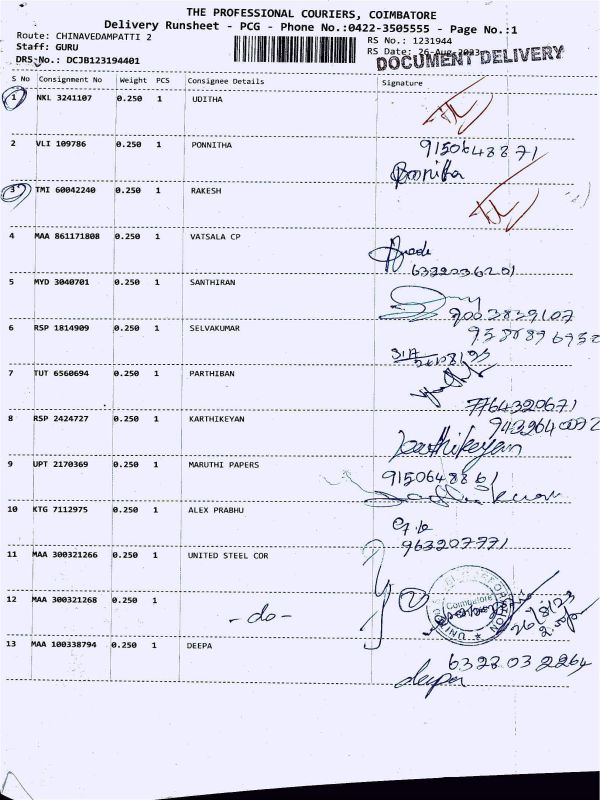 THE PROFESSIONAL COURIERS, COIMBATORE
Delivery Runsheet - PCG - Phone No.:0422-3505555 - Page No.:1
Route: CHINAVEDAMPATTI 2
RS No.: 1231944
Staff: GURU
RS Date: 26-Aug-2023
DRS-No.: DCJB123194401
DOCUMENT DELIVERY
S No Consignment No Weight PCS Consignee Details Signature
1 NKL 3241107 0.250 1 UDITHA
2 VLI 109786 0.250 1 PONNITHA
9150648871
Ponnitha
3 TMI 60042240 0.250 1 RAKESH
4 MAA 861171808 0.250 1 VATSALA CP
6322036201
5 MYD 3040701 0.250 1 SANTHIRAN
9003839107
6 RSP 1814909 0.250 1 SELVAKUMAR
7 TUT 6560694 0.250 1 PARTHIBAN
7764320671
8 RSP 2424727 0.250 1 KARTHIKEYAN
Karthikeyan
9 UPT 2170369 0.250 1 MARUTHI PAPERS
9150648861
10 KTG 7112975 0.250 1 ALEX PRABHU
963207771
11 MAA 300321266 0.250 1 UNITED STEEL COR
12 MAA 300321268 0.250 1 -do-
2
Coimbatore
26/8/23
13 MAA 100338794 0.250 1 DEEPA
6322032264
deepa